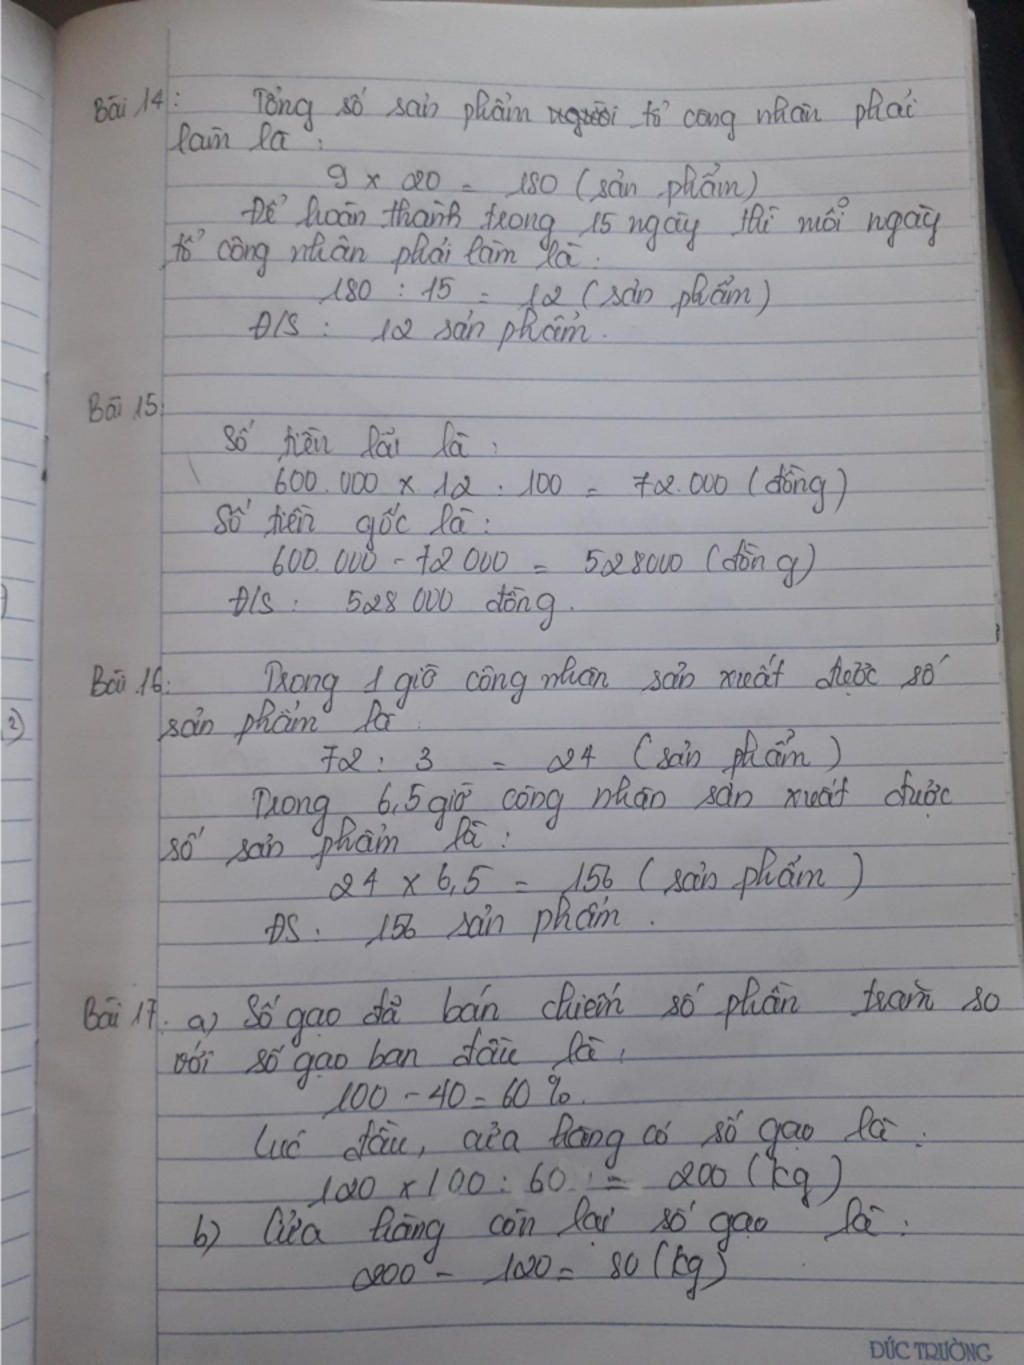 Bài 14: Tổng số sản phẩm người tổ công nhân phải
làm là :
9 x 20 = 180 (sản phẩm)
Để hoàn thành trong 15 ngày thì mỗi ngày
tổ công nhân phải làm là :
180 : 15 = 12 (sản phẩm)
Đ/S : 12 sản phẩm.
Bài 15
Số tiền lãi là :
600.000 x 12 : 100 = 72.000 (đồng)
Số tiền gốc là :
600.000 - 72 000 = 528000 (đồng)
Đ/S : 528 000 đồng.
Bài 16: Trong 1 giờ công nhân sản xuất được số
sản phẩm là
72 : 3 = 24 (sản phẩm)
Trong 6,5 giờ công nhân sản xuất được
số sản phẩm là :
24 x 6,5 = 156 (sản phẩm)
ĐS : 156 sản phẩm.
Bài 17: a) Số gạo đã bán chiếm số phần trăm so
với số gạo ban đầu là :
100 - 40 = 60 %.
Lúc đầu, cửa hàng có số gạo là :
120 x 100 : 60 = 200 (kg)
b) Cửa hàng còn lại số gạo là :
200 - 120 = 80 (kg)
2)
ĐỨC TRƯỜNG